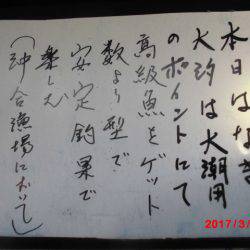 本日はなぎ
大汐は大潮用
のポイントにて
高級魚をゲット
数より型で
安定釣果で
楽しむ
（沖合漁場において）
2017/3/